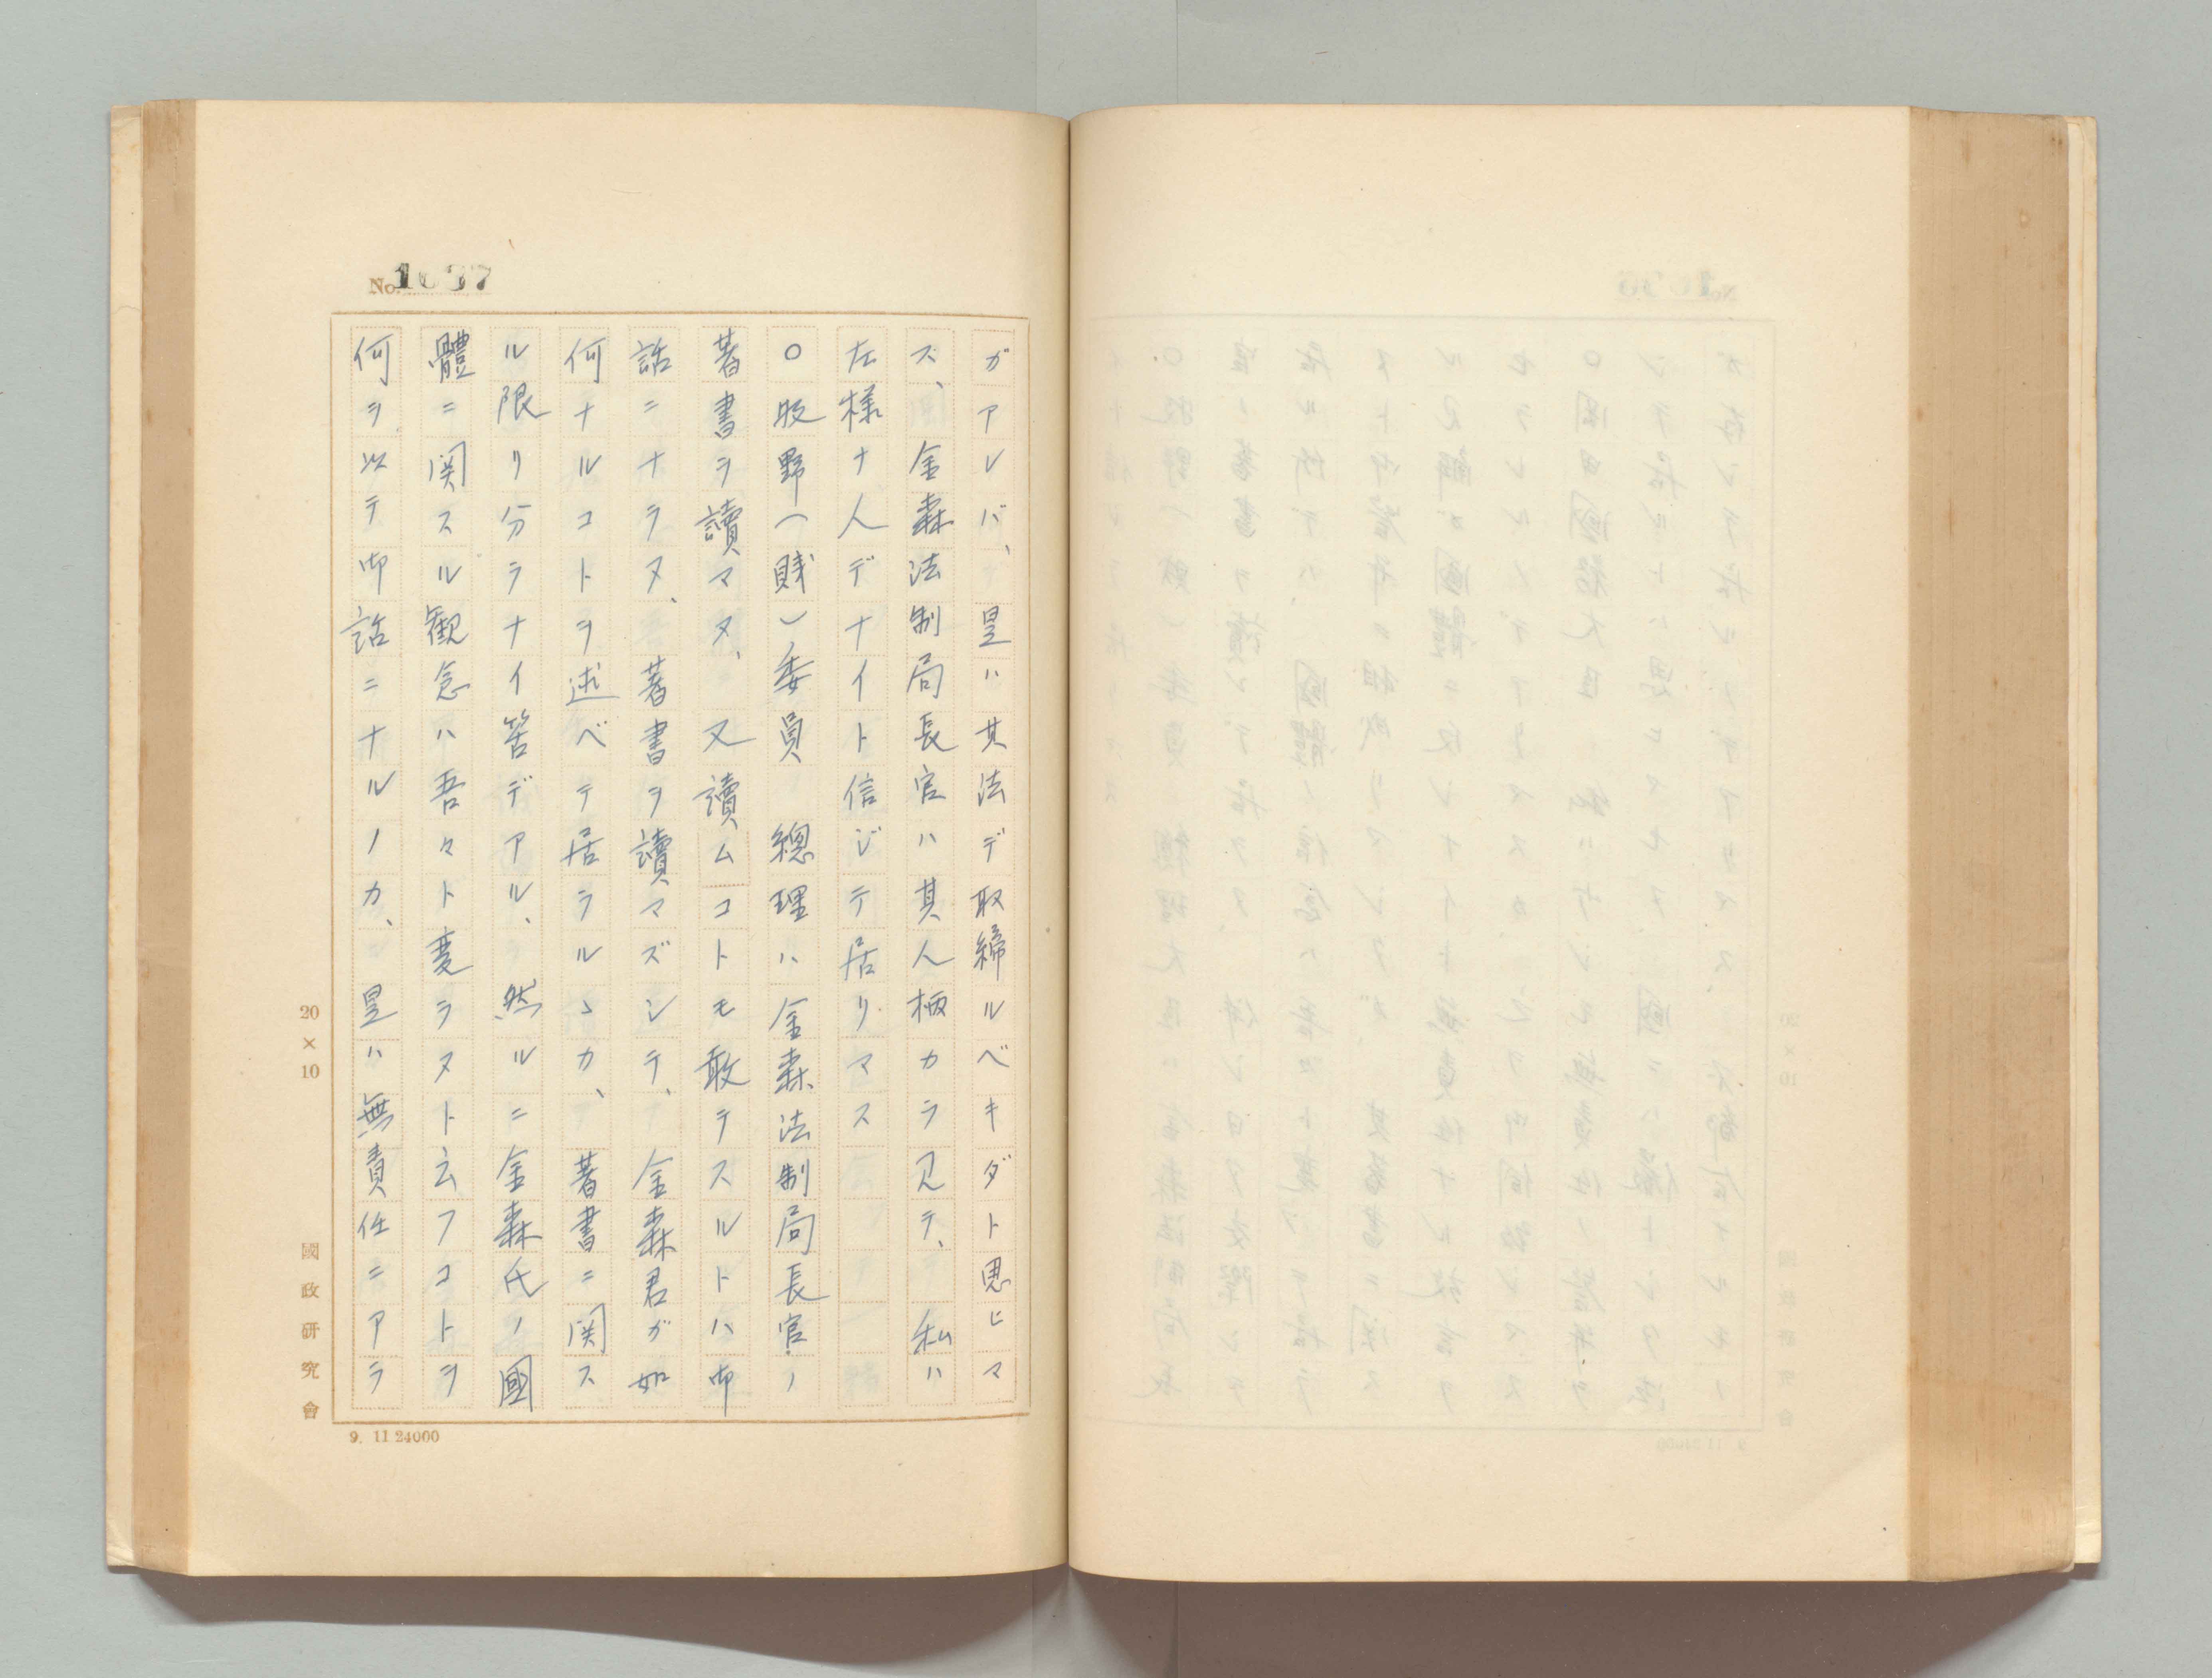 No. 1037
ガアレバ、是ハ其法デ取締ルベキダト思ヒマ
ス、金森法制局長官ハ其人柄カラ見テ、私ハ
左様ナ人デナイト信ジテ居リマス
〇牧野(賤)委員　總理ハ金森法制局長官ノ
著書ヲ讀マヌ、又讀ムコトモ敢テスルトハ御
話ニナラヌ、著書ヲ讀マズシテ、金森君ガ如
何ナルコトヲ述ベテ居ラルヽカ、著書ニ関ス
ル限リ分ラナイ筈デアル、然ルニ金森氏ノ國
體ニ関スル観念ハ吾々ト変ラヌト云フコトヲ
何ヲ以テ御話ニナルノカ、是ハ無責任ニアラ
20×10
國政研究會
9. 11 24000